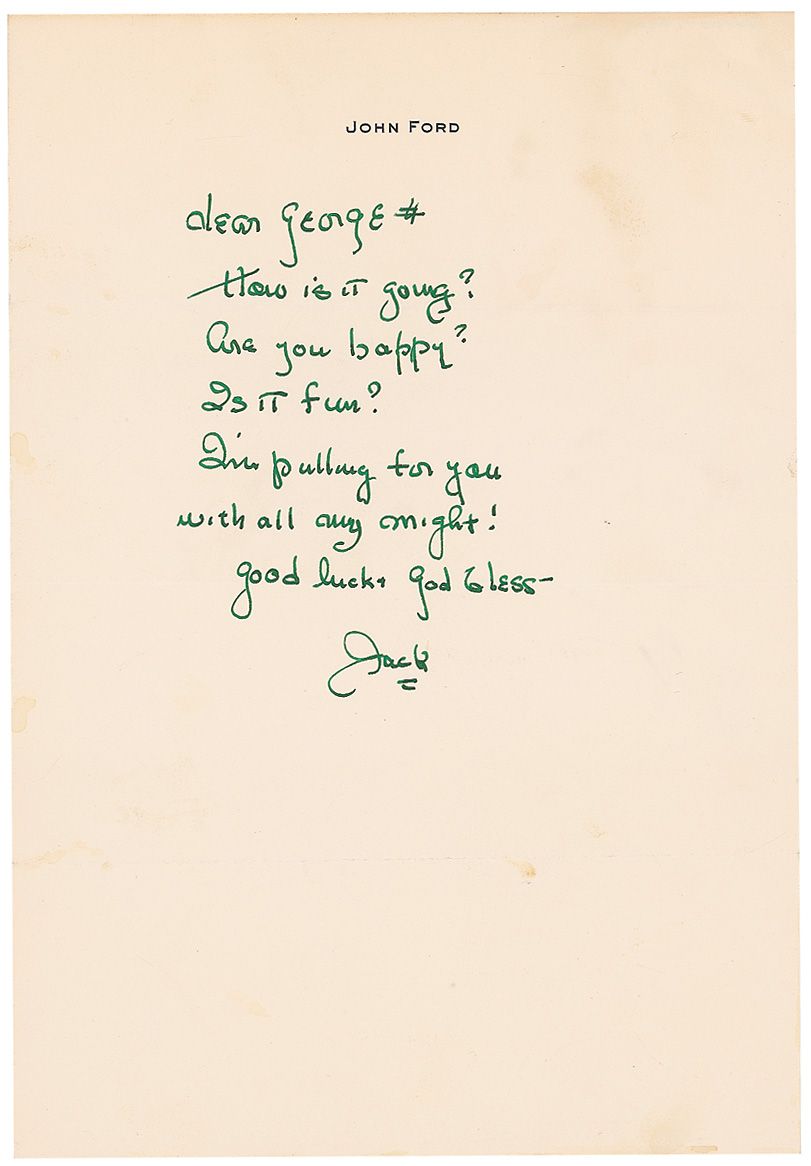 JOHN FORD
dear George #
How is it going?
Are you happy?
Is it fun?
I'm pulling for you
with all my might!
good luck + God bless—
Jack